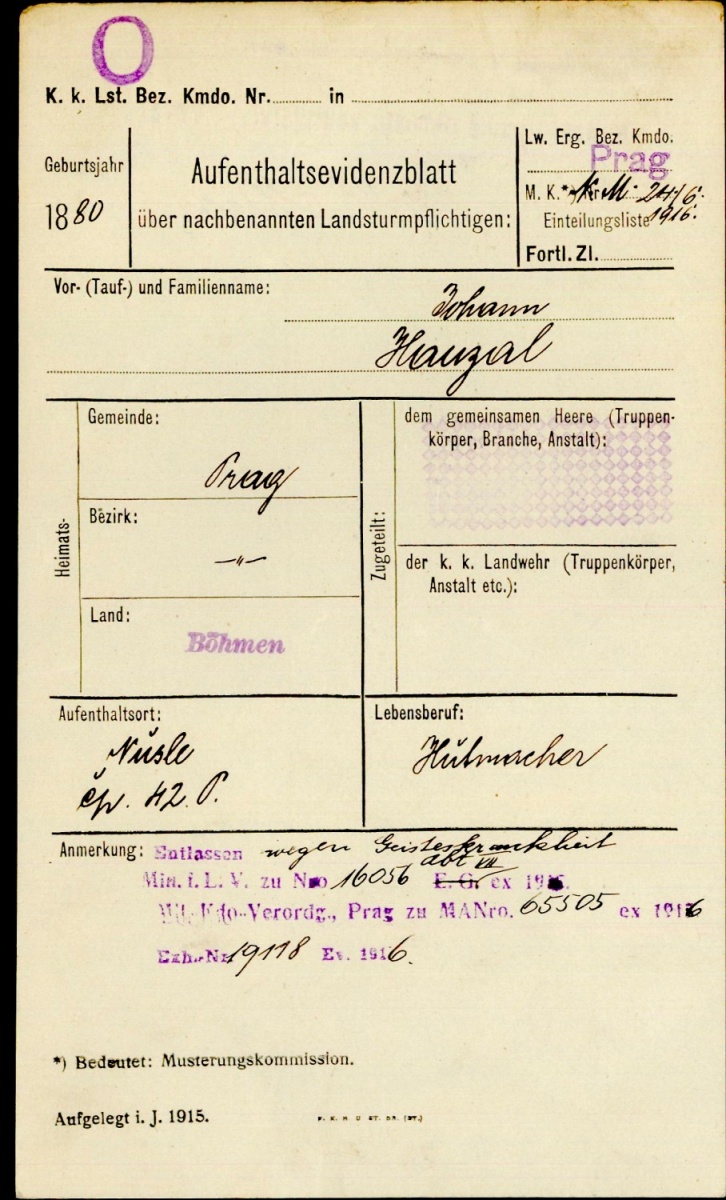 O
K. k. Lst. Bez. Kmdo. Nr. in
Geburtsjahr
1880
Aufenthaltsevidenzblatt
über nachbenannten Landsturmpflichtigen:
Lw. Erg. Bez. Kmdo.
Prag
M. K.*) Nr.
Einteilungsliste 1916.
Fortl. Zl.
Vor- (Tauf-) und Familienname:
Johann
Hanzal
Heimats-
Gemeinde:
Prag
Bezirk:
-"-
Land:
Böhmen
Zugeteilt:
dem gemeinsamen Heere (Truppen-
körper, Branche, Anstalt):
der k. k. Landwehr (Truppenkörper,
Anstalt etc.):
Aufenthaltsort:
Nusle
čp. 42 P.
Lebensberuf:
Hutmacher
Anmerkung: Entlassen wegen Geisteskrankheit
abt VII
Min. f. L. V. zu Nro 16056 E. G. ex 191
Mil. Kdo-Verordg., Prag zu MANro. 65505 ex 1916
Exh. Nr 19118 Ev. 1916.
*) Bedeutet: Musterungskommission.
Aufgelegt i. J. 1915.